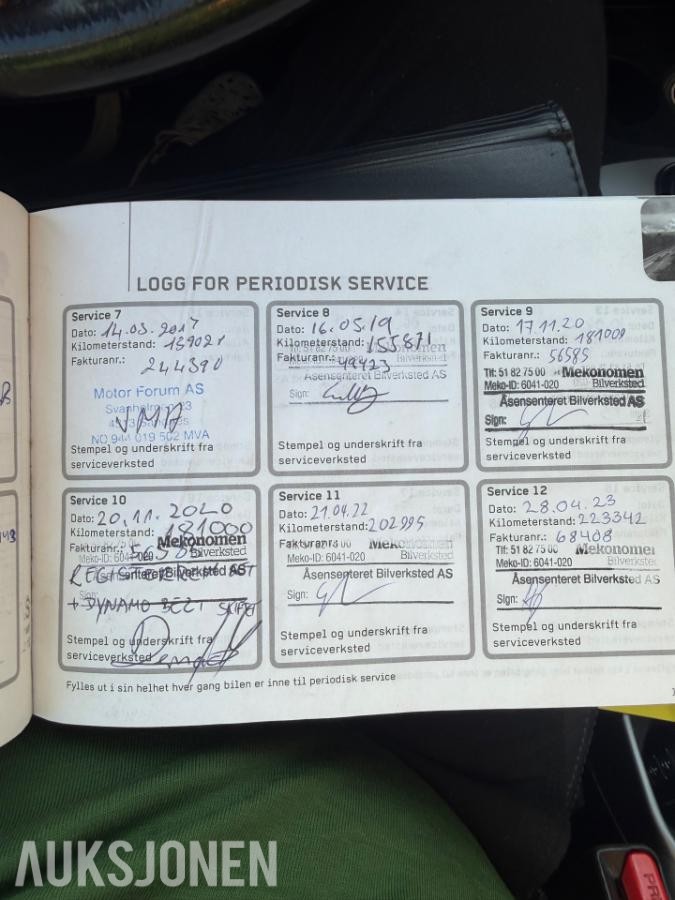 LOGG FOR PERIODISK SERVICE
Service 7
Dato: 14.03.2017
Kilometerstand: 139021
Fakturanr.:
244390
Motor Forum AS
NO 944 019 502 MVA
Stempel og underskrift fra
serviceverksted
Service 8
Dato: 16.05.19
Kilometerstand: 155871
Tlf: 51 82 75 00
Fakturanr.: 49423
Bilverksted
Åsensenteret Bilverksted AS
Sign:
Stempel og underskrift fra
serviceverksted
Service 9
Dato: 17.11.20
Kilometerstand: 181000
Fakturanr.: 56585
Tlf: 51 82 75 00 Mekonomen
Meko-ID: 6041-020 Bilverksted
Åsensenteret Bilverksted AS
Sign:
Stempel og underskrift fra
serviceverksted
Service 10
Dato: 20.11.2020
Kilometerstand: 181000
Fakturanr.: Mekonomen
Bilverksted
+ DYNAMO BELT SKIFTET
Stempel og underskrift fra
serviceverksted
Service 11
Dato: 21.04.22
Kilometerstand: 202995
Fakturanr.:
Meko-ID: 6041-020 Bilverksted
Åsensenteret Bilverksted AS
Sign:
Stempel og underskrift fra
serviceverksted
Service 12
Dato: 28.04.23
Kilometerstand: 223342
Fakturanr.: 68408
Tlf: 51 82 75 00 Mekonomen
Meko-ID: 6041-020 Bilverksted
Åsensenteret Bilverksted AS
Sign:
Stempel og underskrift fra
serviceverksted
Fylles ut i sin helhet hver gang bilen er inne til periodisk service
AUKSJONEN